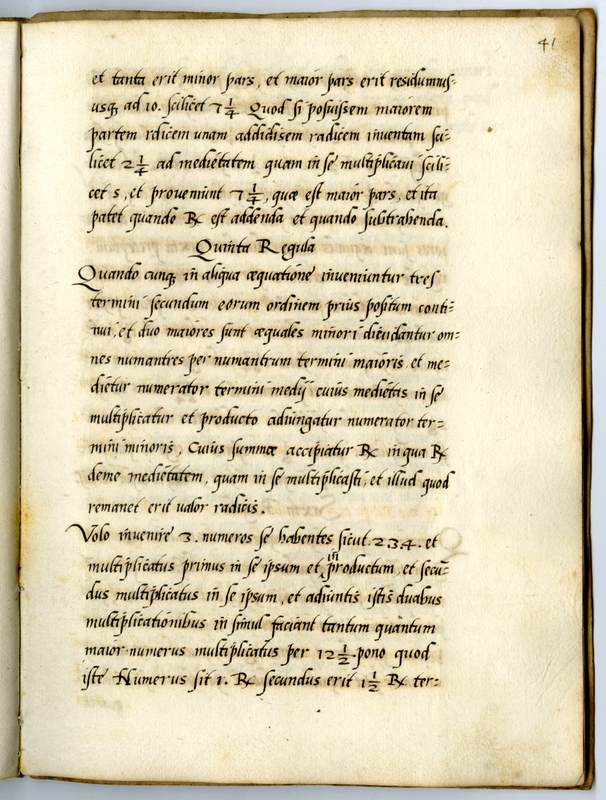 41
et tanta erit minor pars, et maior pars erit residuumus-
usq, ad 10. scilicet 7 1/4. Quod si posuissem maiorem
partem rdicem unam addidisem radicem inventam sci-
licet 2 1/4 ad medietatem quam in se multiplicavi scili-
cet 5, et proveniunt 7 1/4, quæ est maior pars, et ita
patet quando ℞ est addenda et quando subtrahenda.
Quinta Regula
Quando cunq, in aliqua æquatione inveniuntur tres
termini secundum eorum ordinem prius positum conti-
nui, et duo maiores sunt æquales minori dividantur om-
nes numantres per numantrum termini maioris et me-
dietur numerator termini medij cuius medietas in se
multiplicatur et producto adiungatur numerator ter-
mini minoris, Cuius summæ accipiatur ℞ in qua ℞
deme medietatem, quam in se multiplicasti, et illud quod
remanet erit valor radicis.
Volo invenire 3. numeros se habentes sicut. 2 3 4. et
multiplicatus primus in se ipsum et in productum, et secū-
dus multiplicatus in se ipsum, et adiuntis istis duabus
multiplicationibus in simul faciant tantum quantum
maior numerus multiplicatus per 12 1/2. pono quod
iste Numerus sit 1. ℞ secundus erit 1 1/2 ℞ ter-